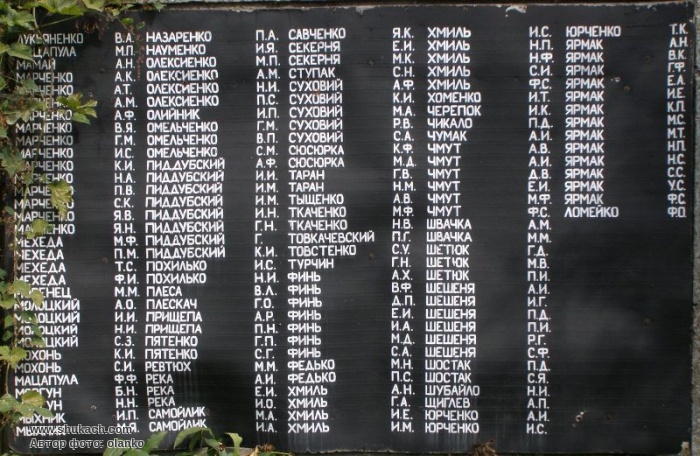 ЛУКЬЯНЕНКО В.А.
МАЦАПУЛА М.П.
МАМАЙ А.Н.
МАРЧЕНКО А.К.
МАРЧЕНКО А.Т.
МАРЧЕНКО А.М.
МАРЧЕНКО А.Ф.
МАРЧЕНКО В.Я.
МАРЧЕНКО Г.М.
МАРЧЕНКО И.С.
МАРЧЕНКО И.Е.
МАРЧЕНКО Н.А.
МАРЧЕНКО П.В.
МАРЧЕНКО С.К.
МАРЧЕНКО Я.В.
МАРЧЕНКО Я.Н.
МЕХЕДА М.Ф.
МЕХЕДА П.М.
МЕХЕДА Т.С.
МЕХЕДА Ф.И.
М.М.
МОЛОЦКИЙ А.О.
МОЛОЦКИЙ И.И.
МОЛОЦКИЙ Н.И.
МОЛОЦКИЙ С.З.
МОХОНЬ К.И.
МОХОНЬ С.И.
МАЦАПУЛА Ф.Ф.
МОРГУН Б.Н.
МОРГУН Н.Н.
МЫХНИК И.П.
НАЗАРЕНКО П.А.
НАУМЕНКО И.Я.
ОЛЕКСИЕНКО М.П.
ОЛЕКСИЕНКО А.М.
ОЛЕКСИЕНКО Н.И.
ОЛЕКСИЕНКО П.С.
ОЛИЙНИК И.П.
ОМЕЛЬЧЕНКО Г.М.
ОМЕЛЬЧЕНКО В.П.
ОМЕЛЬЧЕНКО С.М.
ПИДДУБСКИЙ А.Ф.
ПИДДУБСКИЙ И.И.
ПИДДУБСКИЙ И.М.
ПИДДУБСКИЙ И.М.
ПИДДУБСКИЙ И.Н.
ПИДДУБСКИЙ Г.Н.
ПИДДУБСКИЙ Г.
ПИДДУБСКИЙ К.И.
ПОХИЛЬКО И.С.
ПОХИЛЬКО Н.И.
ПЛЕСА В.Л.
ПЛЕСКАЧ Г.О.
ПРИЩЕПА А.Р.
ПРИЩЕПА П.Н.
ПЯТЕНКО Г.П.
ПЯТЕНКО С.Г.
РЕВТЮХ М.М.
РЕКА А.И.
РЕКА Е.И.
РЕКА И.О.
САМОЙЛИК М.А.
САМОЙЛИК И.А.
САВЧЕНКО Я.К.
СЕКЕРНЯ Е.И.
СЕКЕРНЯ М.К.
СТУПАК С.Н.
СУХОВИЙ А.Ф.
СУХОВИЙ К.И.
СУХОВИЙ М.А.
СУХОВИЙ Р.В.
СУХОВИЙ С.А.
СЮСЮРКА К.Ф.
СЮСЮРКА М.Д.
ТАРАН Г.В.
ТАРАН Н.М.
ТЫЩЕНКО А.В.
ТКАЧЕНКО М.Ф.
ТКАЧЕНКО Н.В.
ТОВКАЧЕВСКИЙ П.Г.
ТОВСТЕНКО С.У.
ТУРЧИН Г.Н.
ФИНЬ А.Х.
ФИНЬ В.Ф.
ФИНЬ Д.П.
ФИНЬ Е.И.
ФИНЬ И.А.
ФИНЬ М.Д.
ФИНЬ С.А.
ФЕДЬКО М.Н.
ФЕДЬКО П.С.
ХМИЛЬ А.Н.
ХМИЛЬ Г.А.
ХМИЛЬ И.Е.
ХМИЛЬ И.М.
ХМИЛЬ И.С.
ХМИЛЬ Н.П.
ХМИЛЬ Н.Ф.
ХМИЛЬ С.И.
ХМИЛЬ Ф.С.
ХОМЕНКО И.Т.
ЧЕРЕПОК К.А.
ЧИКАЛО П.Д.
ЧУМАК А.И.
ЧМУТ А.В.
ЧМУТ А.И.
ЧМУТ В.А.
ЧМУТ Е.И.
ЧМУТ М.Ф.
ЧМУТ Ф.С.
ШВАЧКА А.М.
ШВАЧКА М.М.
ШЕТЮК Г.Д.
ШЕТЮК М.В.
ШЕТЮК П.И.
ШЕШЕНЯ А.И.
ШЕШЕНЯ И.Г.
ШЕШЕНЯ П.Д.
ШЕШЕНЯ П.И.
ШЕШЕНЯ Р.Г.
ШЕШЕНЯ С.Ф.
ШОСТАК П.Д.
ШОСТАК С.Я.
ШУБАЙЛО Н.П.
ЩИГЛЕВ А.П.
ЮРЧЕНКО П.И.
ЮРЧЕНКО И.С.
ЮРЧЕНКО Т.К.
ЯРМАК А.Н.
ЯРМАК В.К.
ЯРМАК Г.Ф.
ЯРМАК Е.А.
ЯРМАК И.Е.
ЯРМАК К.П.
ЯРМАК М.С.
ЯРМАК М.Т.
ЯРМАК Н.П.
ЯРМАК Н.С.
ЯРМАК С.С.
ЯРМАК У.С.
ЯРМАК Ф.С.
ЛОМЕЙКО Ф.О.
www.shukach.com
Автор фото: olanko